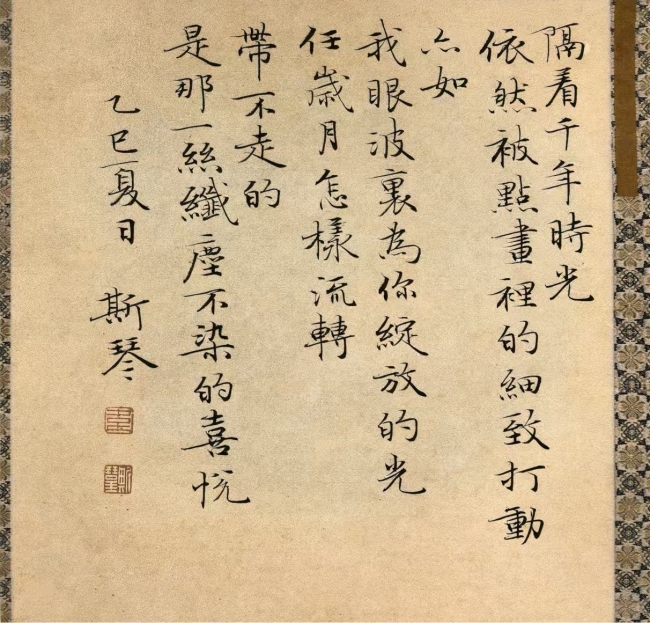 隔着千年時光
依然被點畫裡的細致打動
亦如
我眼波裏為你綻放的光
任歲月怎樣流轉
帶不走的
是那一絲纖塵不染的喜悅
乙巳夏日
斯琴